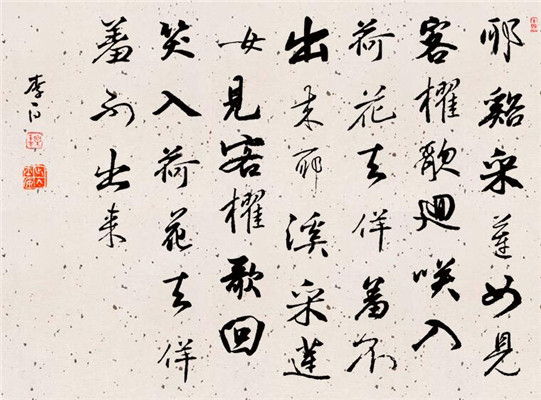 耶谿采蓮女見
客櫂歌迴咲入
荷花去佯羞不
出来耶溪采蓮
女見客櫂歌回
笑入荷花去佯
羞不出来
李白